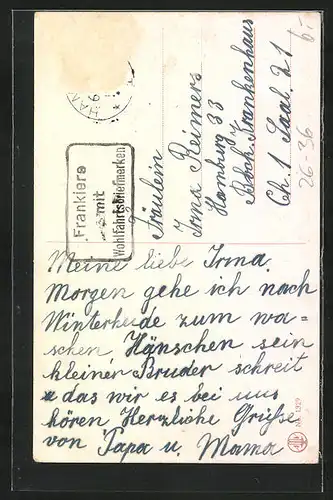 Frankiere
mit
Wohlfahrtsbriefmarken
HAM
Fräulein
Irma Reimers
Hamburg 33
Krankenhaus
Ch. 1 Saal 21
26-36
Meine liebe Irma.
Morgen gehe ich nach
Winterheide zum wa-
schen, Hänschen sein
kleiner Bruder schreit
das wir es bei uns
hören, Herzliche Grüße
von Papa u. Mama
No. 1329